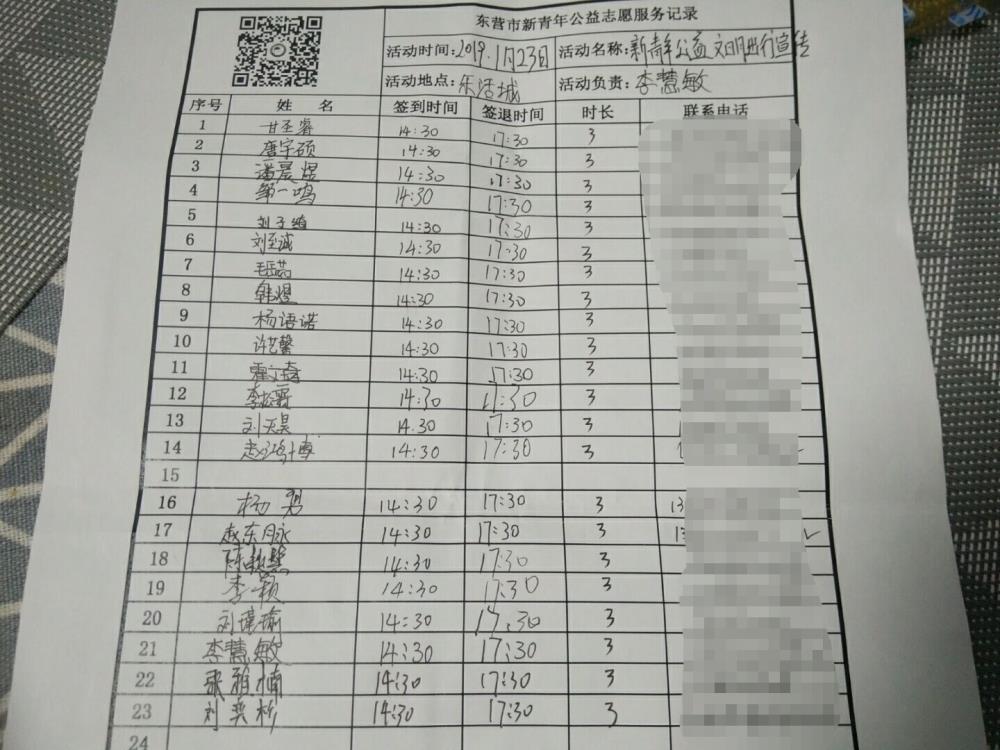 东营市新青年公益志愿服务记录
活动时间:2019.1月23日 活动名称:新青年公益文明出行宣传
活动地点:乐活城 活动负责:李慧敏
序号 姓 名 签到时间 签退时间 时长 联系电话
1 甘圣睿 14:30 17:30 3
2 唐宇硕 14:30 17:30 3
3 潘晨煜 14:30 17:30 3
4 第一鸣 14:30 17:30 3
5 刘子 14:30 17:30 3
6 刘至诚 14:30 17:30 3
7 14:30 17:30 3
8 韩煜 14:30 17:30 3
9 杨语诺 14:30 17:30 3
10 许艺馨 14:30 17:30 3
11 霍文 14:30 17:30 3
12 李 14:30 17:30 3
13 刘天昊 14.30 17:30 3
14 赵鸿博 14:30 17:30 3
15
16 杨 14:30 17:30 3 13
17 赵东脉 14:30 17:30 3 1
18 陈 14:30 17:30 3
19 李颖 14:30 17:30 3
20 刘瑾瑜 14:30 17.30 3
21 李慧敏 14:30 17:30 3
22 张雅楠 14:30 17:30 3
23 刘奕杉 14:30 17:30 3
24